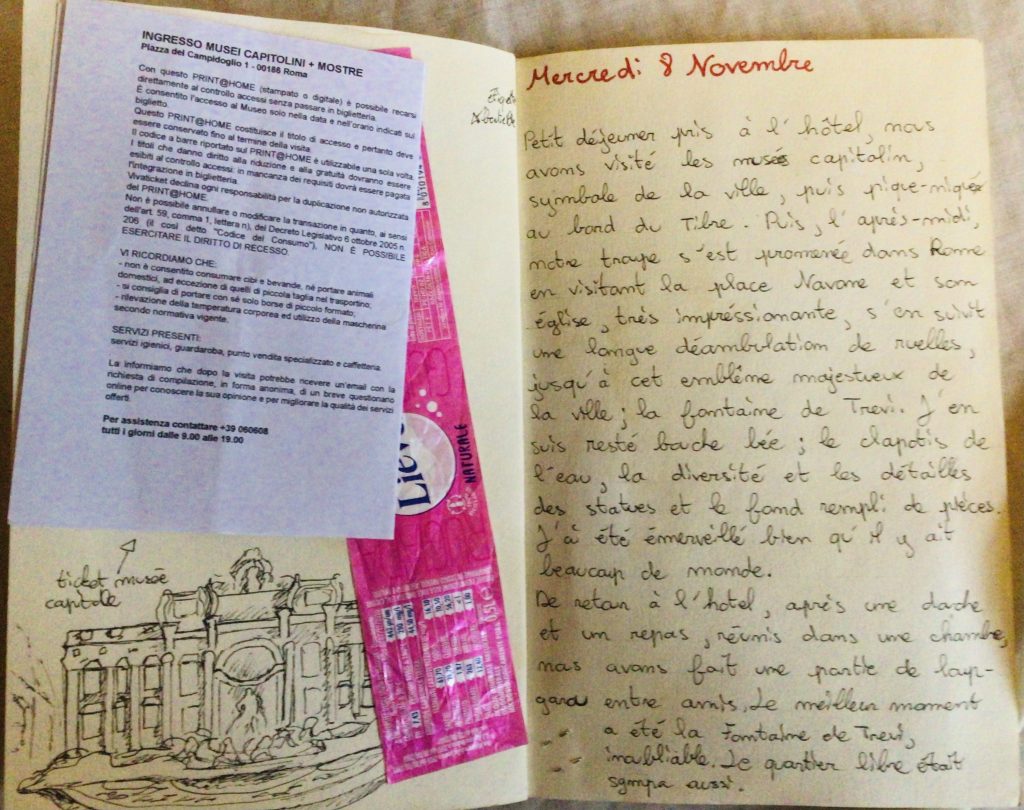 INGRESSO MUSEI CAPITOLINI + MOSTRE
Piazza del Campidoglio 1 - 00186 Roma
Con questo PRINT@HOME (stampato o digitale) è possibile recarsi
direttamente al controllo accessi senza passare in biglietteria.
È consentito l'accesso al Museo solo nella data e nell'orario indicati sul
biglietto.
Questo PRINT@HOME costituisce il titolo di accesso e pertanto deve
essere conservato fino al termine della visita.
Il codice a barre riportato sul PRINT@HOME è utilizzabile una sola volta.
I titoli che danno diritto alla riduzione e alla gratuità dovranno essere
esibiti al controllo accessi: in mancanza dei requisiti dovrà essere pagata
l'integrazione in biglietteria.
Vivaticket declina ogni responsabilità per la duplicazione non autorizzata
del PRINT@HOME.
Non è possibile annullare o modificare la transazione in quanto, ai sensi
dell'art. 59, comma 1, lettera n), del Decreto Legislativo 6 ottobre 2005 n.
206 (il così detto "Codice del Consumo"), NON È POSSIBILE
ESERCITARE IL DIRITTO DI RECESSO.
VI RICORDIAMO CHE:
- non è consentito consumare cibi e bevande, né portare animali
domestici, ad eccezione di quelli di piccola taglia nel trasportino;
- si consiglia di portare con sé solo borse di piccolo formato;
- rilevazione della temperatura corporea ed utilizzo della mascherina
secondo normativa vigente.
SERVIZI PRESENTI:
servizi igienici, guardaroba, punto vendita specializzato e caffetteria.
La informiamo che dopo la visita potrebbe ricevere un'email con la
richiesta di compilazione, in forma anonima, di un breve questionario
online per conoscere la sua opinione e per migliorare la qualità dei servizi
offerti.
Per assistenza contattare +39 060608
tutti i giorni dalle 9.00 alle 19.00
ticket musée
capitole
NATURALE
Mercredi 8 Novembre
Petit déjeuner pris à l'hôtel, nous
avons visité les musés capitolin,
symbole de la ville, puis pique-niqué
au bord du Tibre. Puis, l'après-midi,
notre troupe s'est promenée dans Rome
en visitant la place Navone et son
église, très impréssionante, s'en suivit
une longue déambulation de ruelles,
jusqu'à cet emblême majestueux de
la ville; la fontaine de Trevi. J'en
suis resté bouche bée; le clapotis de
l'eau, la diversité et les détailles
des statues et le fond rempli de pièces.
J'ai été émerveillé bien qu'il y ait
beaucoup de monde.
De retour à l'hotel, après une douche
et un repas, réunis dans une chambre,
nous avons fait une partie de loup-
garou entre amis. Le meilleur moment
a été la Fontaine de Trevi,
inoubliable. Le quartier libre était
sympa aussi.